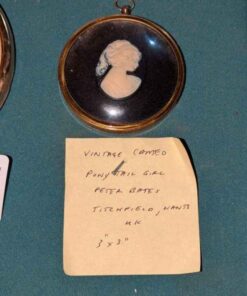 VINTAGE CAMEO
PONY TAIL GIRL
PETER BATES
TITCHFIELD, HANTS
UK
3" x 3"